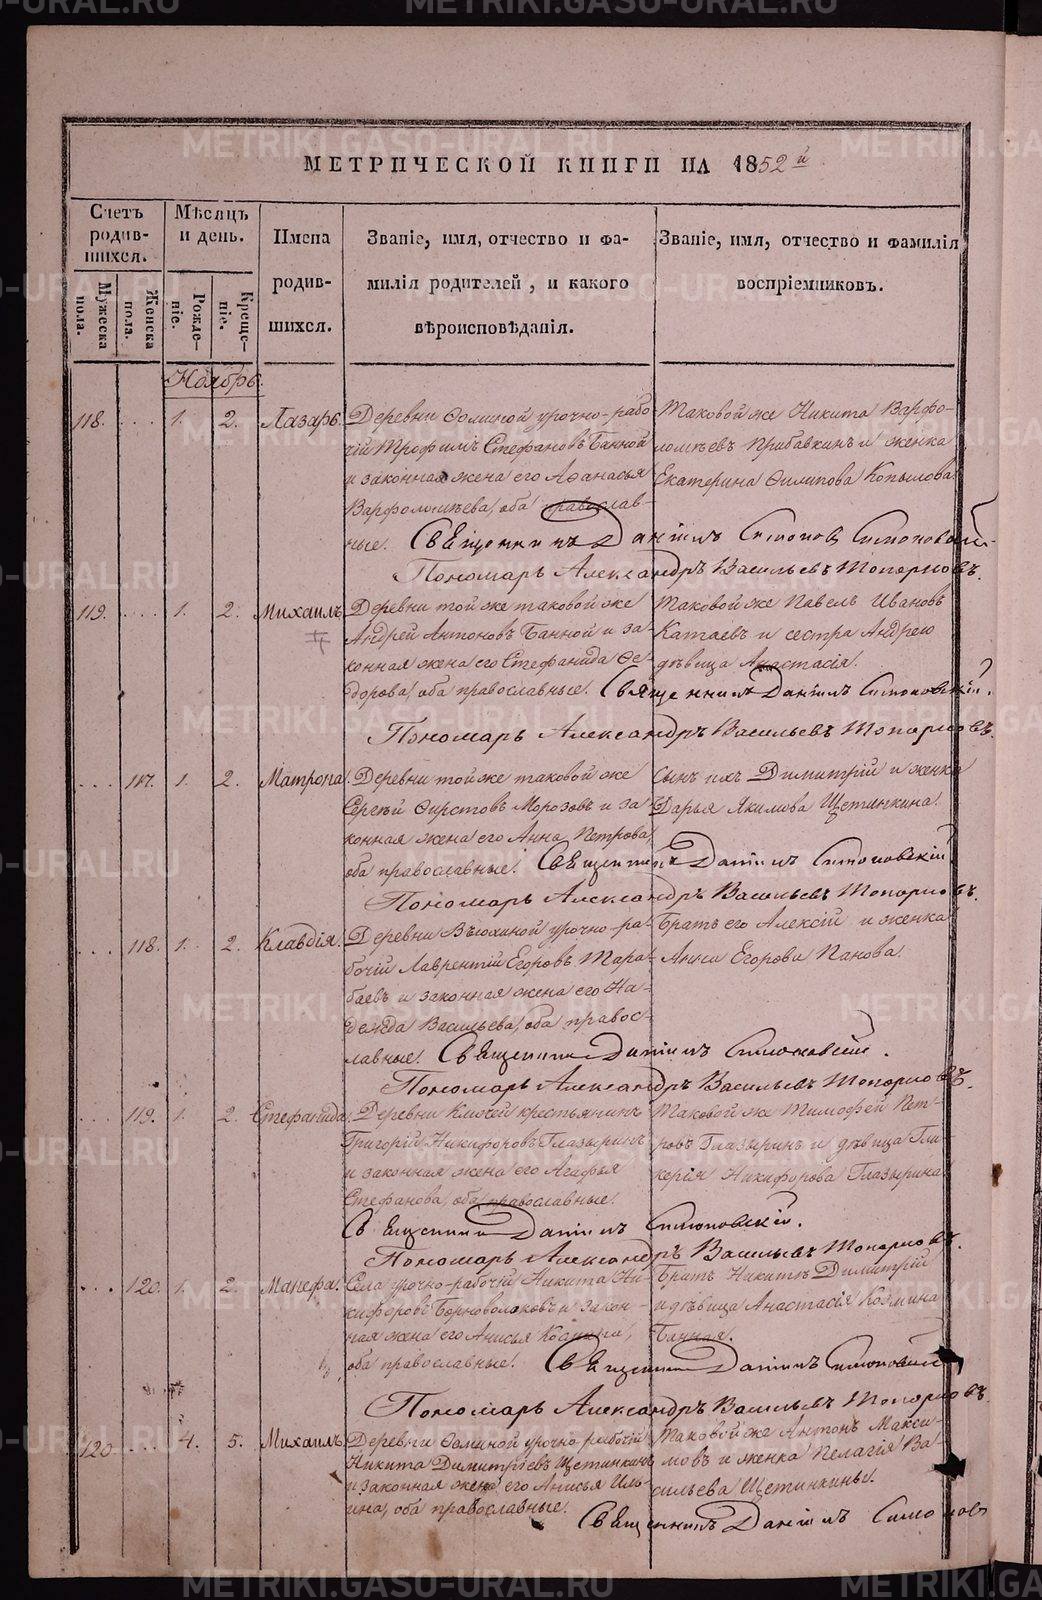 МЕТРИЧЕСКОЙ КНИГИ НА 1852й
Счетъ родив-шихся.
Мѣсяцъ и день.
Имена родив-шихся.
Званіе, имя, отчество и фа-
милія родителей, и какого
вѣроисповѣданія.
Званіе, имя, отчество и фамилія
воспріемниковъ.
Мужеска пола.
Женска пола.
Рожде-ніе.
Креще-ніе.
Ноябрь.
118. .... 1. 2. Лазарь.
Деревни Ѳоминой урочно-рабо-
чій Трофимъ Стефановъ Банной
и законная жена его Аѳанасья
Варфоломѣева, оба православ-
ные.
Таковой же Никита Варфо-
ломѣевъ Прибавкинъ и женка
Екатерина Филипова Копылова.
Священникъ Даніилъ Симоновскій
Пономарь Александръ Васильевъ Топорковъ.
119. .... 1. 2. Михаилъ.
Деревни той же таковой же
Андрей Антоновъ Банной и за-
конная жена его Стефанида Ѳе-
дорова, оба православные.
Таковой же Павелъ Ивановъ
Катаевъ и сестра Андрею
дѣвица Анастасія.
Священникъ Даніилъ Симоновскій.
Пономарь Александръ Васильевъ Топорковъ.
... 117. 1. 2. Матрона.
Деревни той же таковой же
Сергѣй Фирстовъ Морозовъ и за-
конная жена его Анна Петрова,
оба православные.
Сынъ ихъ Димитрій и женка
Дарья Якимова Щетинкина.
Священникъ Даніилъ Симоновскій
Пономарь Александръ Васильевъ Топорковъ.
.... 118. 1. 2. Клавдія.
Деревни Вѣюхиной урочно-ра-
бочій Лаврентій Егоровъ Тара-
баевъ и законная жена его На-
дежда Васильева, оба правос-
лавные.
Братъ его Алексій и женка
Анна Егорова Панова.
Священникъ Даніилъ Симоновскій.
Пономарь Александръ Васильевъ Топорковъ.
.... 119. 1. 2. Стефанида.
Деревни Ключей крестьянинъ
Григорій Никифоровъ Глазыринъ
и законная жена его Агафья
Стефанова, оба православные.
Таковой же Тимофей Пет-
ровъ Глазыринъ и дѣвица Гли-
керія Никифорова Глазырина
Священникъ Даніилъ Симоновскій.
Пономарь Александръ Васильевъ Топорковъ.
... 120. 1. 2. Манефа.
Села урочно-рабочій Никита Ни-
кифоровъ Борноволоковъ и закон-
ная жена его Анисья Козмина,
оба православные.
Братъ Никиты Димитрій
и дѣвица Анастасія Козмина
Банная.
Священникъ Даніилъ Симоновскій
Пономарь Александръ Васильевъ Топорковъ.
120 .... 4. 5. Михаилъ.
Деревни Ѳоминой урочно-рабочій
Никита Димитріевъ Щетинкинъ
и законная жена его Анисья Иль-
ина, оба православные.
Таковой же Антонъ Макси-
мовъ и женка Пелагія Ва-
сильева Щетинкины.
Священникъ Даніилъ Симонов
METRIKI.GASO-URAL.RU